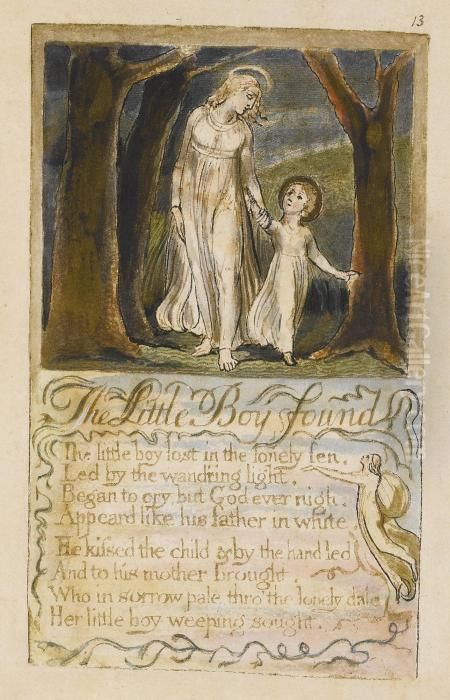 13
The Little Boy found
The little boy lost in the lonely fen,
Led by the wand'ring light,
Began to cry, but God ever nigh,
Appeard like his father in white.
He kissed the child & by the hand led
And to his mother brought,
Who in sorrow pale, thro' the lonely dale
Her little boy weeping sought.